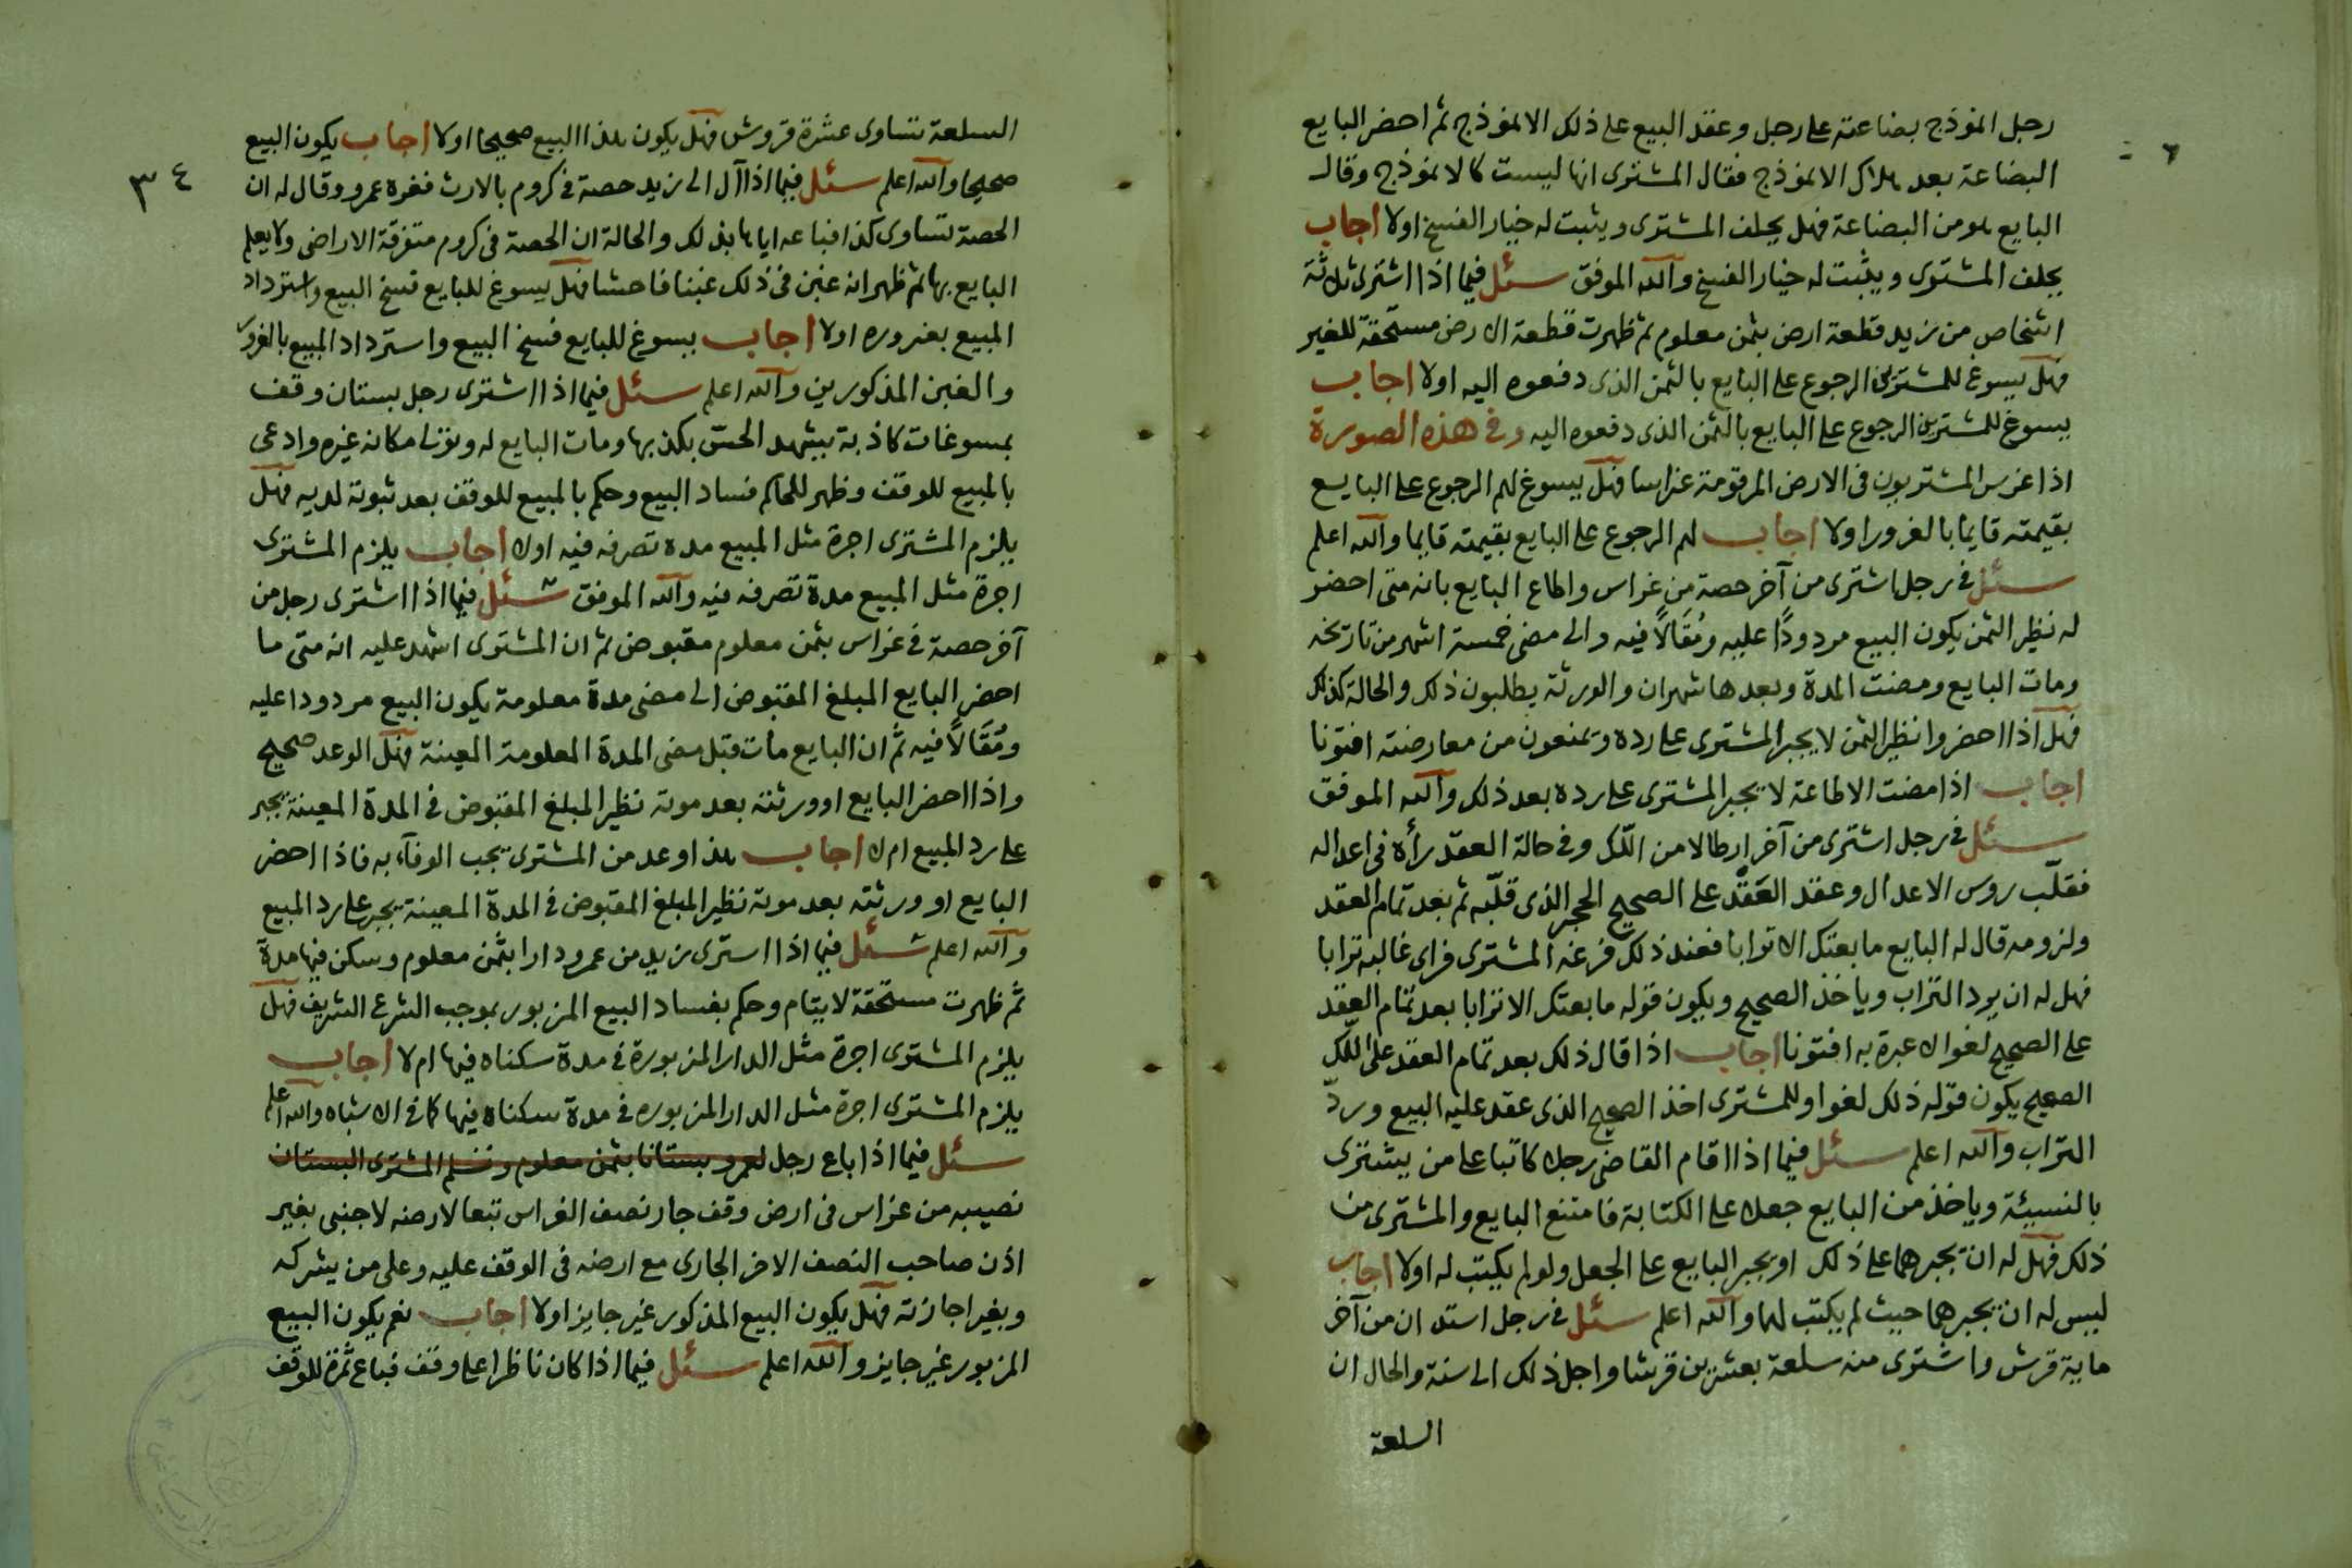 رجل انموذج بضاعته على رجل وعقد البيع على ذلك الانموذج ثم احضر البايع
البضاعة بعد هلاك الانموذج فقال المشترى انها ليست كالانموذج وقال
البايع هو من البضاعة فهل يحلف المشترى ويثبت له خيار الفسخ اولا اجاب
يحلف المشترى ويثبت له خيار الفسخ والله الموفق سئل فيما اذا اشترى ثلاثة
اشخاص من زيد قطعة ارض بثمن معلوم ثم ظهرت قطعة الارض مستحقة للغير
فهل يسوغ للمشترين الرجوع على البايع بالثمن الذى دفعوه اليه اولا اجاب
يسوغ للمشترين الرجوع على البايع بالثمن الذى دفعوه اليه وفى هذه الصورة
اذا غرس المشتريون فى الارض المرقومة غراسا فهل يسوغ لهم الرجوع على البايع
بقيمته قايما بالغرور اولا اجاب لهم الرجوع على البايع بقيمته قايما والله اعلم
سئل فى رجل اشترى من آخر حصة من غراس واطاع البايع بانه متى احضر
له نظير الثمن يكون البيع مردودًا عليه ومُقَالًا فيه والى مضى خمسة اشهر من تاريخه
ومات البايع ومضت المدة وبعدها شهران والورثة يطلبون ذلك والحالة كذلك
فهل اذا احضروا نظير الثمن لا يجبر المشترى على رده ويمنعون من معارضته افتونا
اجاب اذا مضت الاطاعة لا يجبر المشترى على رده بعد ذلك والله الموفق
سئل فى رجل اشترى من آخر ارطالا من اللّك وفى حالة العقد رأه فى اعداله
فقلّب روس الاعدال وعقد العَقْد على الصحيح الحجر الذى قلّبه ثم بعد تمام العقد
ولزومه قال له البايع ما بعتك الا ترابا فعند ذلك فرغه المشترى فراى غالبه ترابا
فهل له ان يرد التراب وياخذ الصحيح ويكون قوله ما بعتك الا ترابا بعد تمام العقد
على الصحيح لغوا لا عبرة به افتونا اجاب اذا قال ذلك بعد تمام العقد على اللّك
الصحيح يكون قوله ذلك لغوا وللمشترى اخذ الصحيح الذى عقد عليه البيع وردّ
التراب والله اعلم سئل فيما اذا اقام القاضى رجلا كاتبا على من يشترى
بالنسيئة وياخذ من البايع جعلا على الكتابة فامتنع البايع والمشترى من
ذلك فهل له ان يجبرهما على ذلك او يجبر البايع على الجعل ولو لم يكتب له اولا اجاب
ليس له ان يجبرهما حيث لم يكتب لهما والله اعلم سئل فى رجل استدان من آخر
ماية قرش واشترى منه سلعة بعشرين قرشا واجل ذلك الى سنة والحال ان
السلعة
٣٤
السلعة تساوى عشرة قروش فهل يكون هذا البيع صحيحا اولا اجاب يكون البيع
صحيحا والله اعلم سئل فيما اذا آل الى زيد حصة فى كروم بالارث فغره عمرو وقال له ان
الحصة تساوى كذا فباعه اياها بذلك والحالة ان الحصة فى كروم متفرقة الاراضى ولا يعلم
البايع بها ثم ظهر انه غبن فى ذلك غبنا فاحشا فهل يسوغ للبايع فسخ البيع واسترداد
المبيع بغروره اولا اجاب يسوغ للبايع فسخ البيع واسترداد المبيع بالغرور
والغبن المذكورين والله اعلم سئل فيما اذا اشترى رجل بستان وقف
بمسوغات كاذبة يشهد الحس بكذبها ومات البايع له وتولى مكانه غيره وادعى
بالمبيع للوقف وظهر للحاكم فساد البيع وحكم بالمبيع للوقف بعد ثبوته لديه فهل
يلزم المشترى اجرة مثل المبيع مدة تصرفه فيه اولا اجاب يلزم المشترى
اجرة مثل المبيع مدة تصرفه فيه والله الموفق سئل فيما اذا اشترى رجل من
آخر حصة فى غراس بثمن معلوم مقبوض ثم ان المشترى اشهد عليه انه متى ما
احضر البايع المبلغ المقبوض الى مضى مدة معلومة يكون البيع مردودا عليه
ومُقَالًا فيه ثم ان البايع مات قبل مضى المدة المعلومة المعينة فهل الوعد صحيح
واذا احضر البايع او ورثته بعد موته نظير المبلغ المقبوض فى المدة المعينة يجبر
على رد المبيع ام لا اجاب هذا وعد من المشترى يجب الوفاء به فاذا احضر
البايع او ورثته بعد موته نظير المبلغ المقبوض فى المدة المعينة يجبر على رد المبيع
والله اعلم سئل فيما اذا اشترى زيد من عمرو دارا بثمن معلوم وسكن فيها مدة
ثم ظهرت مستحقة لايتام وحكم بفساد البيع المزبور بموجب الشرع الشريف فهل
يلزم المشترى اجرة مثل الدار المزبورة فى مدة سكناه فيها ام لا اجاب
يلزم المشترى اجرة مثل الدار المزبوره فى مدة سكناه فيها كما فى الاشباه والله اعلم
سئل فيما اذا باع رجل لعمرو بستانا بثمن معلوم وتسلم المشترى البستان
نصيبه من غراس فى ارض وقف جار نصف الغراس تبعا لارضه لاجنبى بغير
اذن صاحب النصف الاخر الجارى مع ارضه فى الوقف عليه وعلى من يشركه
وبغير اجازته فهل يكون البيع المذكور غير جايز اولا اجاب نعم يكون البيع
المزبور غير جايز والله اعلم سئل فيما اذا كان ناظرا على وقف فباع ثمرة للوقف